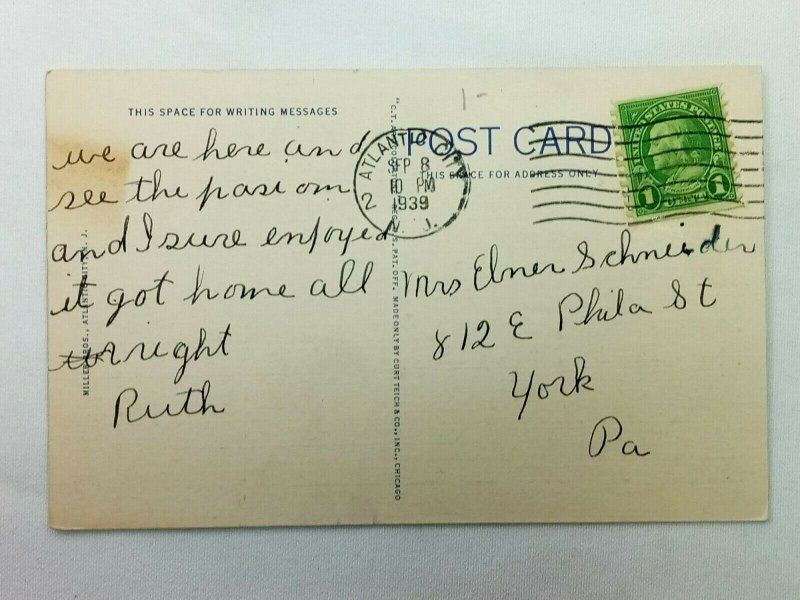 THIS SPACE FOR WRITING MESSAGES
we are here and
see the
and I sure enjoyed
it got home all
right
Ruth
MILLER BROS., ATLANTIC CITY, N. J.
PAT. OFF. MADE ONLY BY CURT TEICH & CO., INC., CHICAGO
1-
POST CARD
THIS SPACE FOR ADDRESS ONLY
ATLANTIC CITY
2
SEP 8
10 PM
1939
N. J.
UNITED STATES POSTAGE
1 1
Mrs Elmer Schneider
812 E Phila St
York
Pa